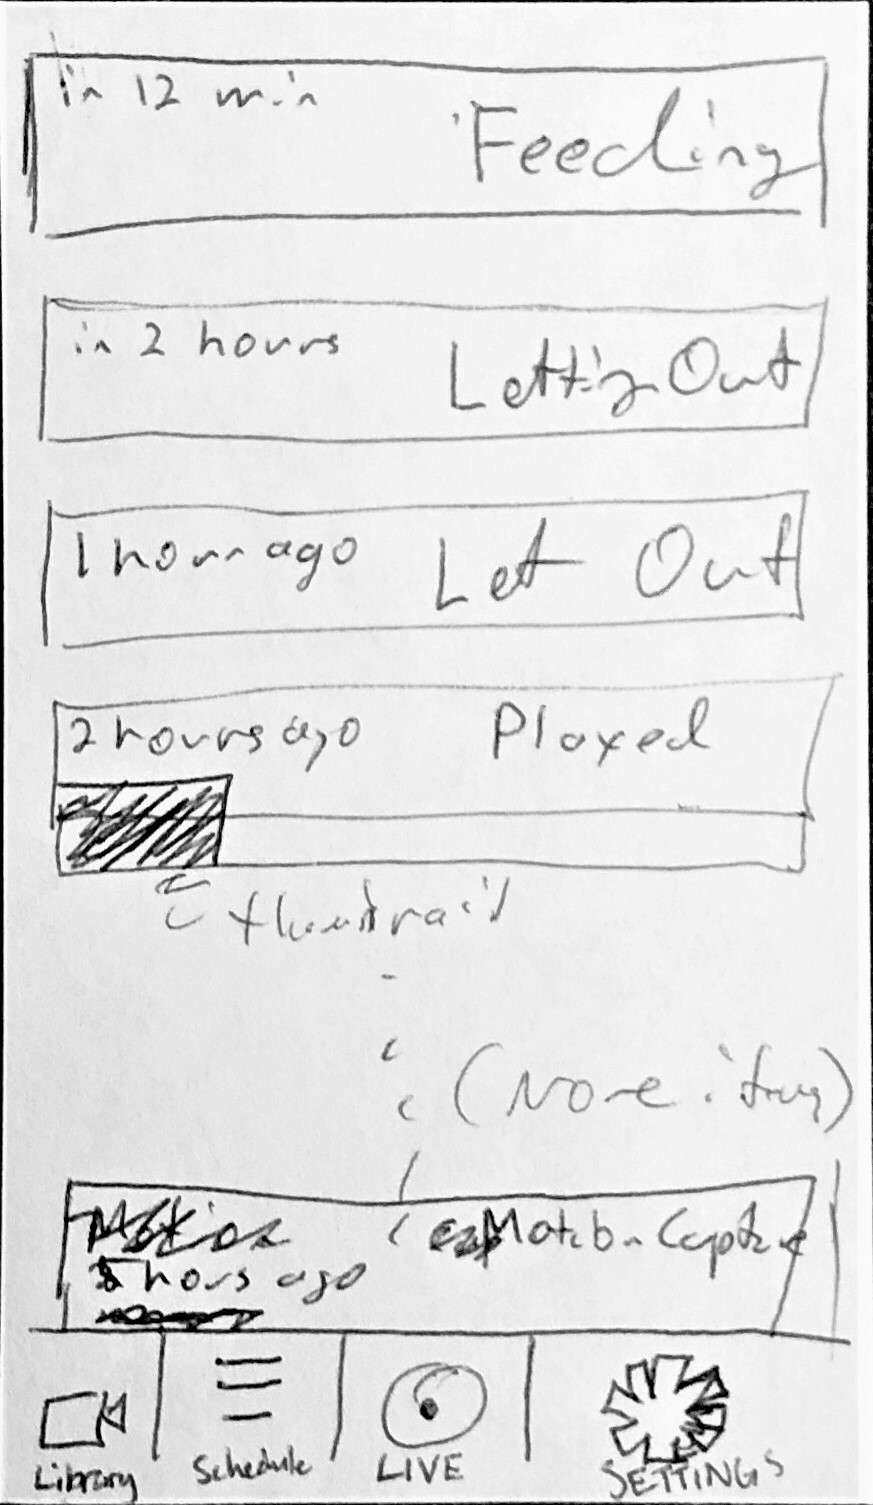 in 12 min
Feeding
in 2 hours
Letting Out
1 hour ago
Let Out
2 hours ago
Played
thumbnail
(More items)
Motion
Motion Capture
hours ago
Library
Schedule
LIVE
SETTINGS